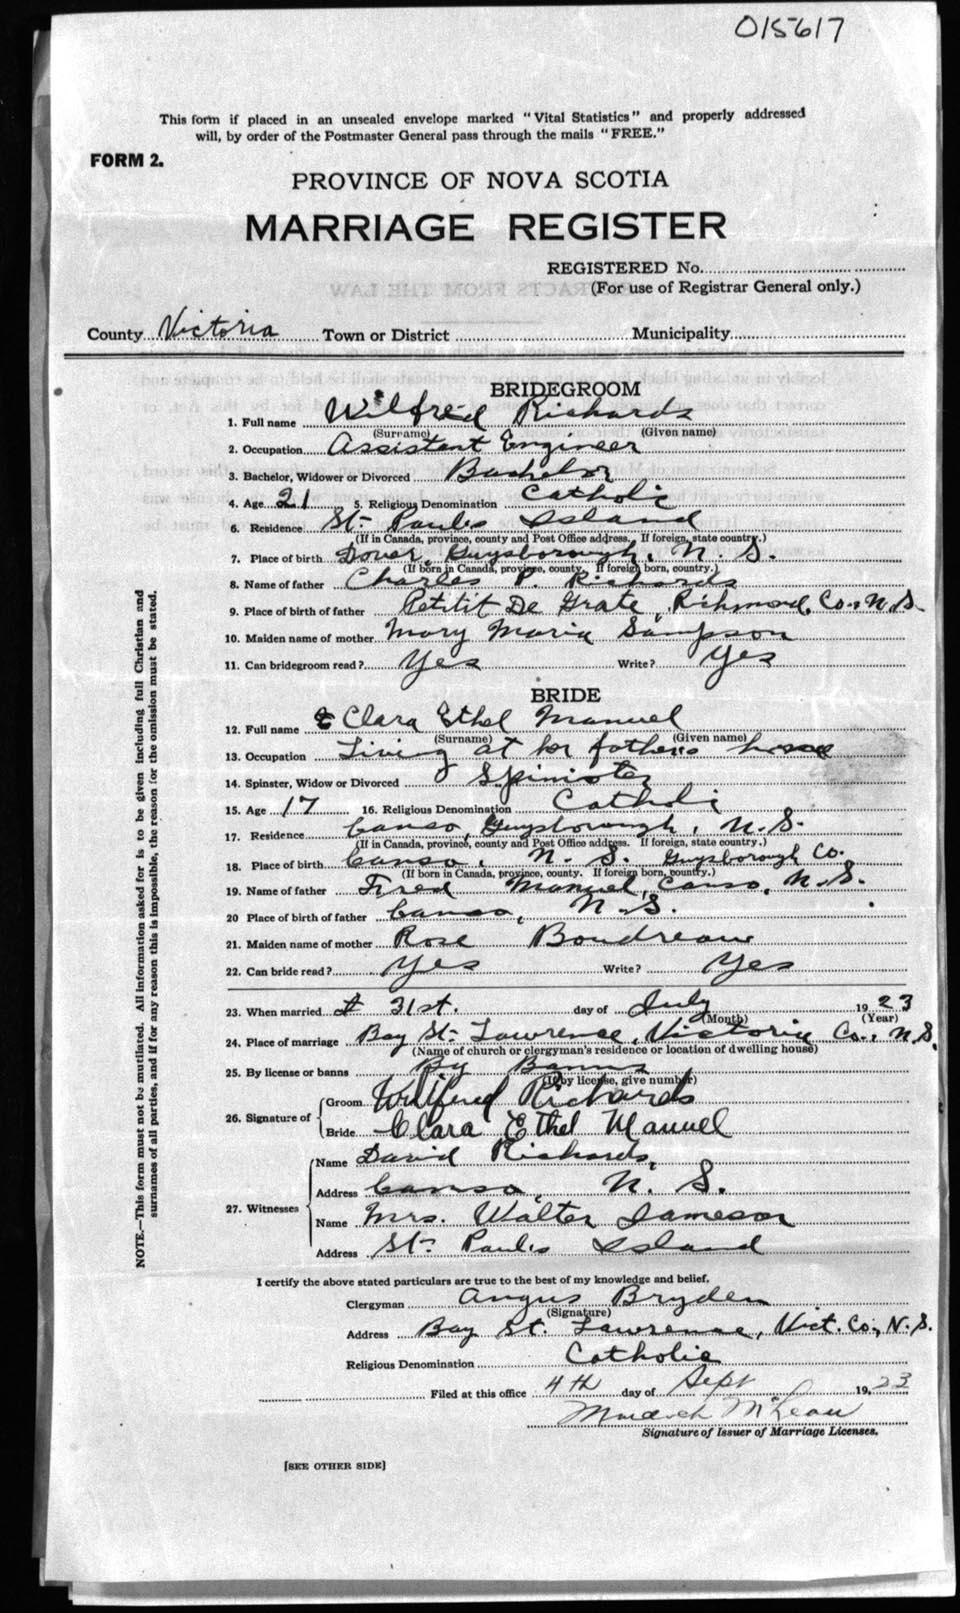 015617
This form if placed in an unsealed envelope marked "Vital Statistics" and properly addressed
will, by order of the Postmaster General pass through the mails "FREE."
FORM 2.
PROVINCE OF NOVA SCOTIA
MARRIAGE REGISTER
REGISTERED No.
(For use of Registrar General only.)
County Victoria Town or District Municipality
BRIDEGROOM
1. Full name Wilfred Richards
(Surname) (Given name)
2. Occupation Assistant Engineer
3. Bachelor, Widower or Divorced Bachelor
4. Age 21 5. Religious Denomination Catholic
6. Residence St. Pauls Island
(If in Canada, province, county and Post Office address. If foreign, state country.)
7. Place of birth Dover, Guysborough, N. S.
(If born in Canada, province, county. If foreign born, country.)
8. Name of father Charles P. Richards
9. Place of birth of father Petitit De Grate, Richmond, Co., N.S.
10. Maiden name of mother Mary Maria Sampson
11. Can bridegroom read? Yes Write? Yes
BRIDE
12. Full name Clara Ethel Manuel
(Surname) (Given name)
13. Occupation Living at her fathers house
14. Spinster, Widow or Divorced Spinister
15. Age 17 16. Religious Denomination Catholi
17. Residence Canso, Guysborough, N.S.
(If in Canada, province, county and Post Office address. If foreign, state country.)
18. Place of birth Canso, N. S. Guysborough Co.
(If born in Canada, province, county. If foreign born, country.)
19. Name of father Fred Manuel, Canso, N.S.
20 Place of birth of father Canso, N.S.
21. Maiden name of mother Rose Boudreau
22. Can bride read? Yes Write? Yes
23. When married 31st. day of July 1923
(Month) (Year)
24. Place of marriage Bay St. Lawrence, Victoria Co., N.S.
(Name of church or clergyman's residence or location of dwelling house)
25. By license or banns By Banns
(If by license, give number)
26. Signature of Groom Wilfred Richards
Bride Clara Ethel Manuel
27. Witnesses Name David Richards,
Address Canso, N. S.
Name Mrs. Walter Jameson
Address St. Pauls Island
I certify the above stated particulars are true to the best of my knowledge and belief.
Clergyman Angus Bryden
(Signature)
Address Bay St. Lawrence, Vict. Co., N.S.
Religious Denomination Catholic
Filed at this office 4th day of Sept 1923
Murdoch McLean
Signature of Issuer of Marriage Licenses.
[SEE OTHER SIDE]
NOTE.—This form must not be mutilated. All information asked for is to be given including full Christian and
surnames of all parties, and if for any reason this is impossible, the reason for the omission must be stated.